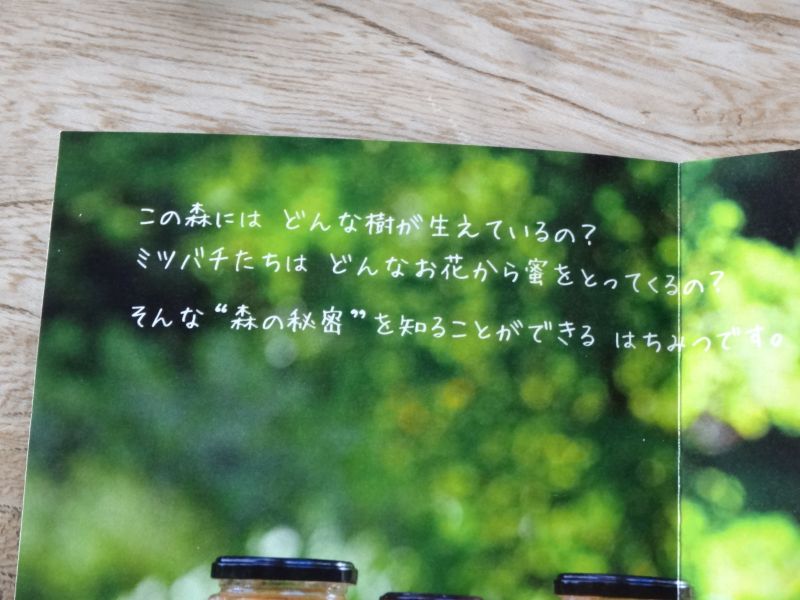 この森には どんな樹が生えているの?
ミツバチたちは どんなお花から蜜をとってくるの?
そんな“森の秘密”を知ることができる はちみつです。